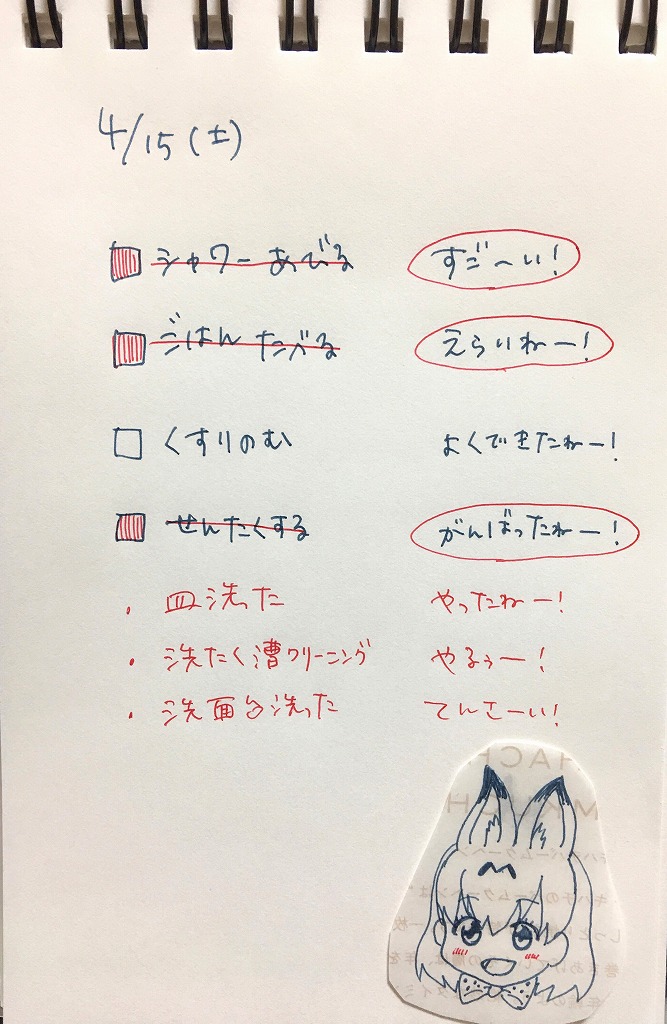 4/15(土)
シャワーあびる すご〜い!
ごはんたべる えらいねー!
くすりのむ よくできたねー!
せんたくする がんばったねー!
・皿洗った やったねー!
・洗たく漕クリーニング やるぅー!
・洗面台洗った てんさーい!